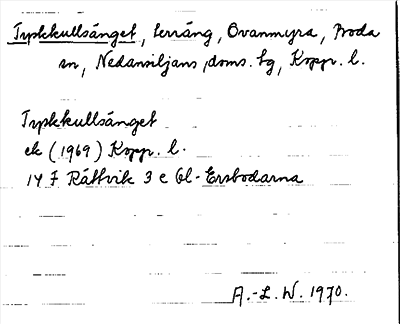 Trykkullsänget, terräng, Ovanmyra, Boda
sn, Nedansiljans doms. tg, Kopp. l.
Trykkullsänget
ek (1969) Kopp. l.
14 F Rättvik 3 e Gl-Ersbodarna
A.-L. W. 1970.